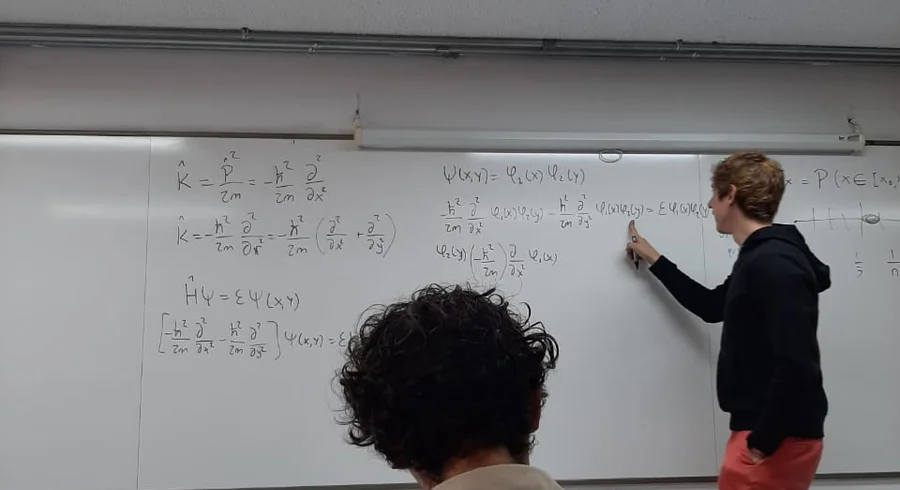 K̂ = P̂²/2m = -ħ²/2m ∂²/∂x²
K̂ = -ħ²/2m ∂²/∂x² = -ħ²/2m (∂²/∂x² + ∂²/∂y²)
ĤΨ = εΨ(x,y)
[-ħ²/2m ∂²/∂x² - ħ²/2m ∂²/∂y²] Ψ(x,y) = ε
Ψ(x,y) = φ₁(x) φ₂(y)
-ħ²/2m ∂/∂x² φ₁(x)φ₂(y) - ħ²/2m ∂²/∂y² φ₁(x)φ₂(y) = εφ₁(x)φ₂(y)
φ₂(y) (-ħ²/2m) ∂/∂x² φ₁(x)
x = P(x ∈ [x₀,
1/5 1/n